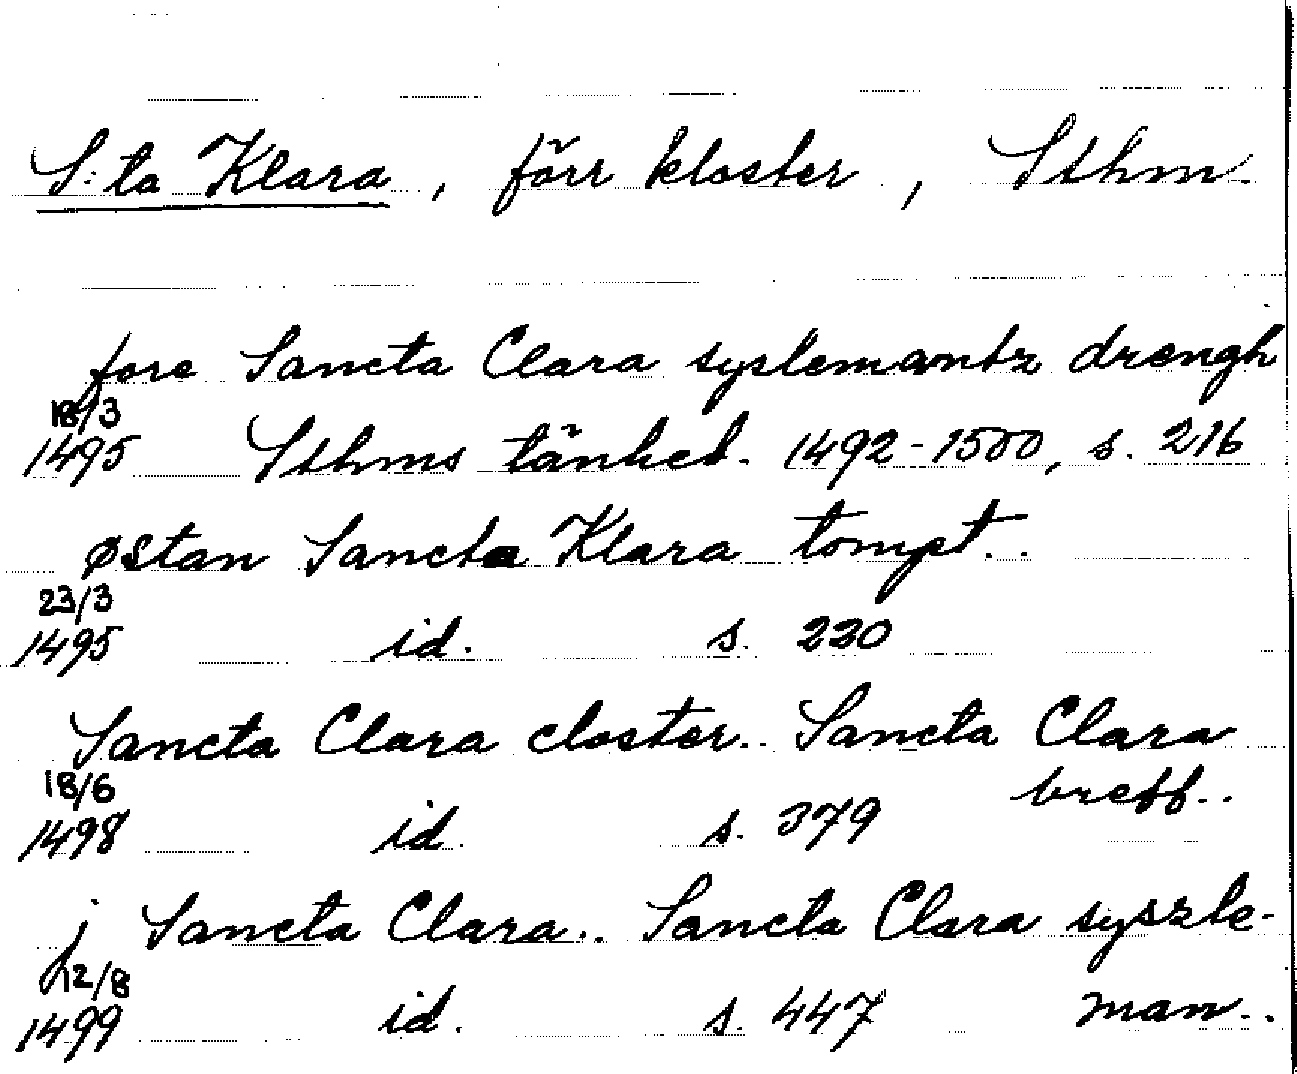 S:ta Klara, förr kloster, Sthm.
fore Sancta Clara syslemantz drengh
18/3
1495 Sthms tänkeb. 1492-1500, s. 216
østan Sancta Klara tompt..
23/3
1495 id. s. 220
Sancta Clara closter.. Sancta Clara
18/6 breff..
1498 id. s. 379
j Sancta Clara.. Sancta Clara syszle-
12/8
1499 id. s. 447 man..